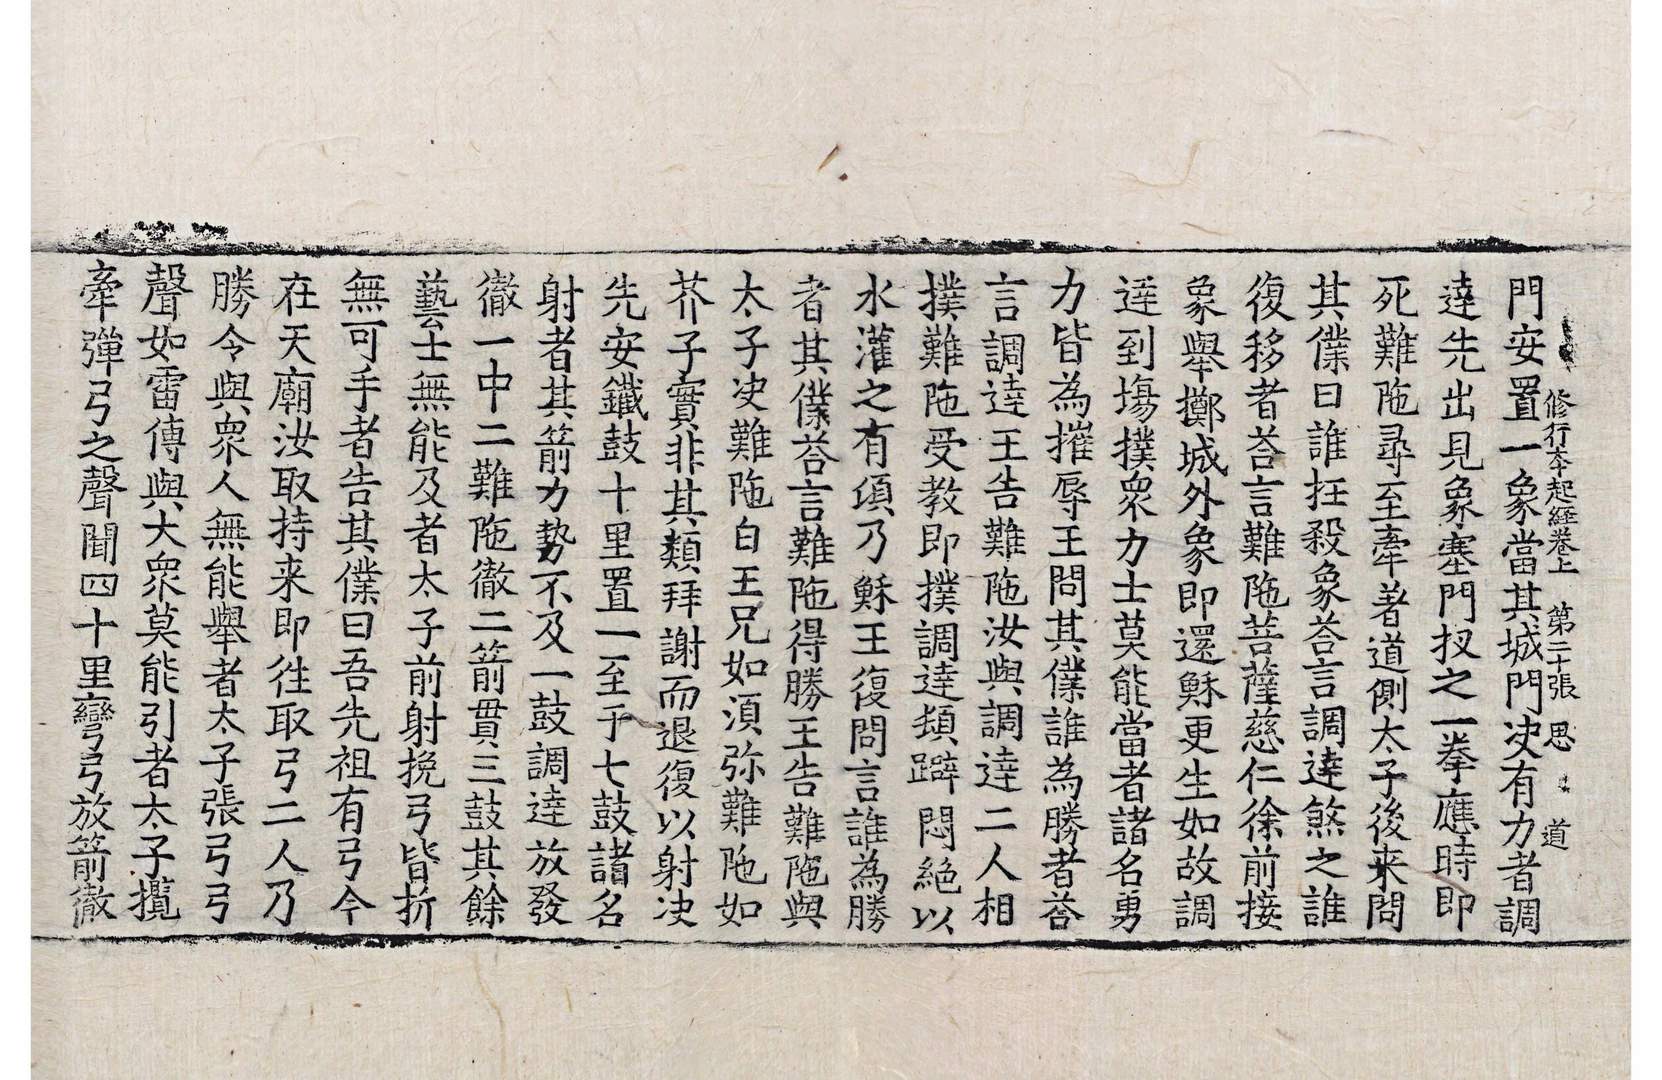 修行本起經卷上　第二十張　思　道
門安置一象當其城門决有力者調
達先出見象塞門扠之一拳應時即
死難陁尋至牽著道側太子後来問
其僕曰誰抂殺象荅言調達煞之誰
復移者荅言難陁菩薩慈仁徐前接
象舉擲城外象即還穌更生如故調
達到塲撲衆力士莫能當者諸名勇
力皆為摧辱王問其僕誰為勝者荅
言調達王告難陁汝與調達二人相
撲難陁受教即撲調達頓躃悶絕以
水灌之有湏乃穌王復問言誰為勝
者其僕荅言難陁得勝王告難陁與
太子决難陁白王兄如湏弥難陁如
芥子實非其類拜謝而退復以射决
先安鐵鼓十里置一至于七鼓諸名
射者其箭力勢不及一鼓調達放發
徹一中二難陁徹二箭貫三鼓其餘
藝士無能及者太子前射挽弓皆折
無可手者告其僕曰吾先祖有弓今
在天廟汝取持来即徃取弓二人乃
勝令與衆人無能舉者太子張弓弓
聲如雷傳與大衆莫能引者太子攬
牽彈弓之聲聞四十里彎弓放箭徹